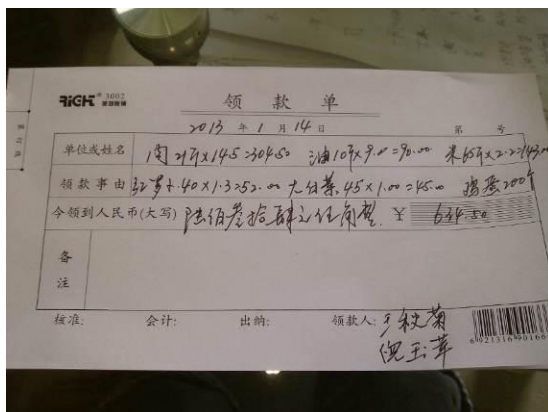 RiCH® 3002
领款单
2013年1月14日 第 号
单位或姓名 肉21斤×14.5=304.50 油10斤×9.00=90.00 米65斤×2.2=143.00
领款事由 红萝卜.40×1.3=52.00 大白菜.45×1.00=45.00 鸡蛋200个
今领到人民币(大写) 陆佰叁拾肆元伍角整 ¥ 634.50
备注
核准: 会计: 出纳: 领款人: 于秋菊
倪玉萍
692131690166